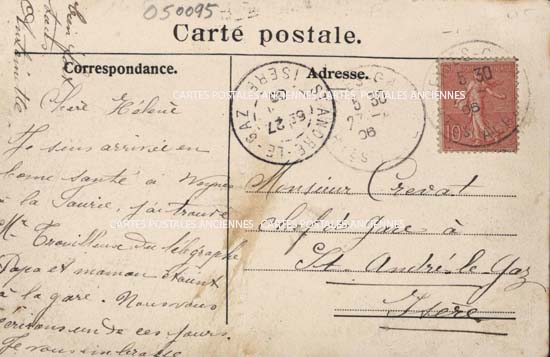 050095
Carte postale.
Correspondance.
Adresse.
Chère Hélène
Je suis arrivée en
bonne santé à Veynes
la Saurie j'ai trouvé
Mr Trouilleux du télégraphe
Papa et maman étaient
à la gare. Nous vous
écrirons un de ces jours.
Je vous embrasse
Monsieur Crevat
Chef de gare à
St. André-le-Gaz
Isère
ST ANDRE-LE-GAZ
(ISERE)
27
5 30
06
5 30
06
10
CARTES POSTALES ANCIENNES
CARTES POSTALES ANCIENNES
CARTES POSTALES ANCIENNES
CARTES POSTALES ANCIENNES